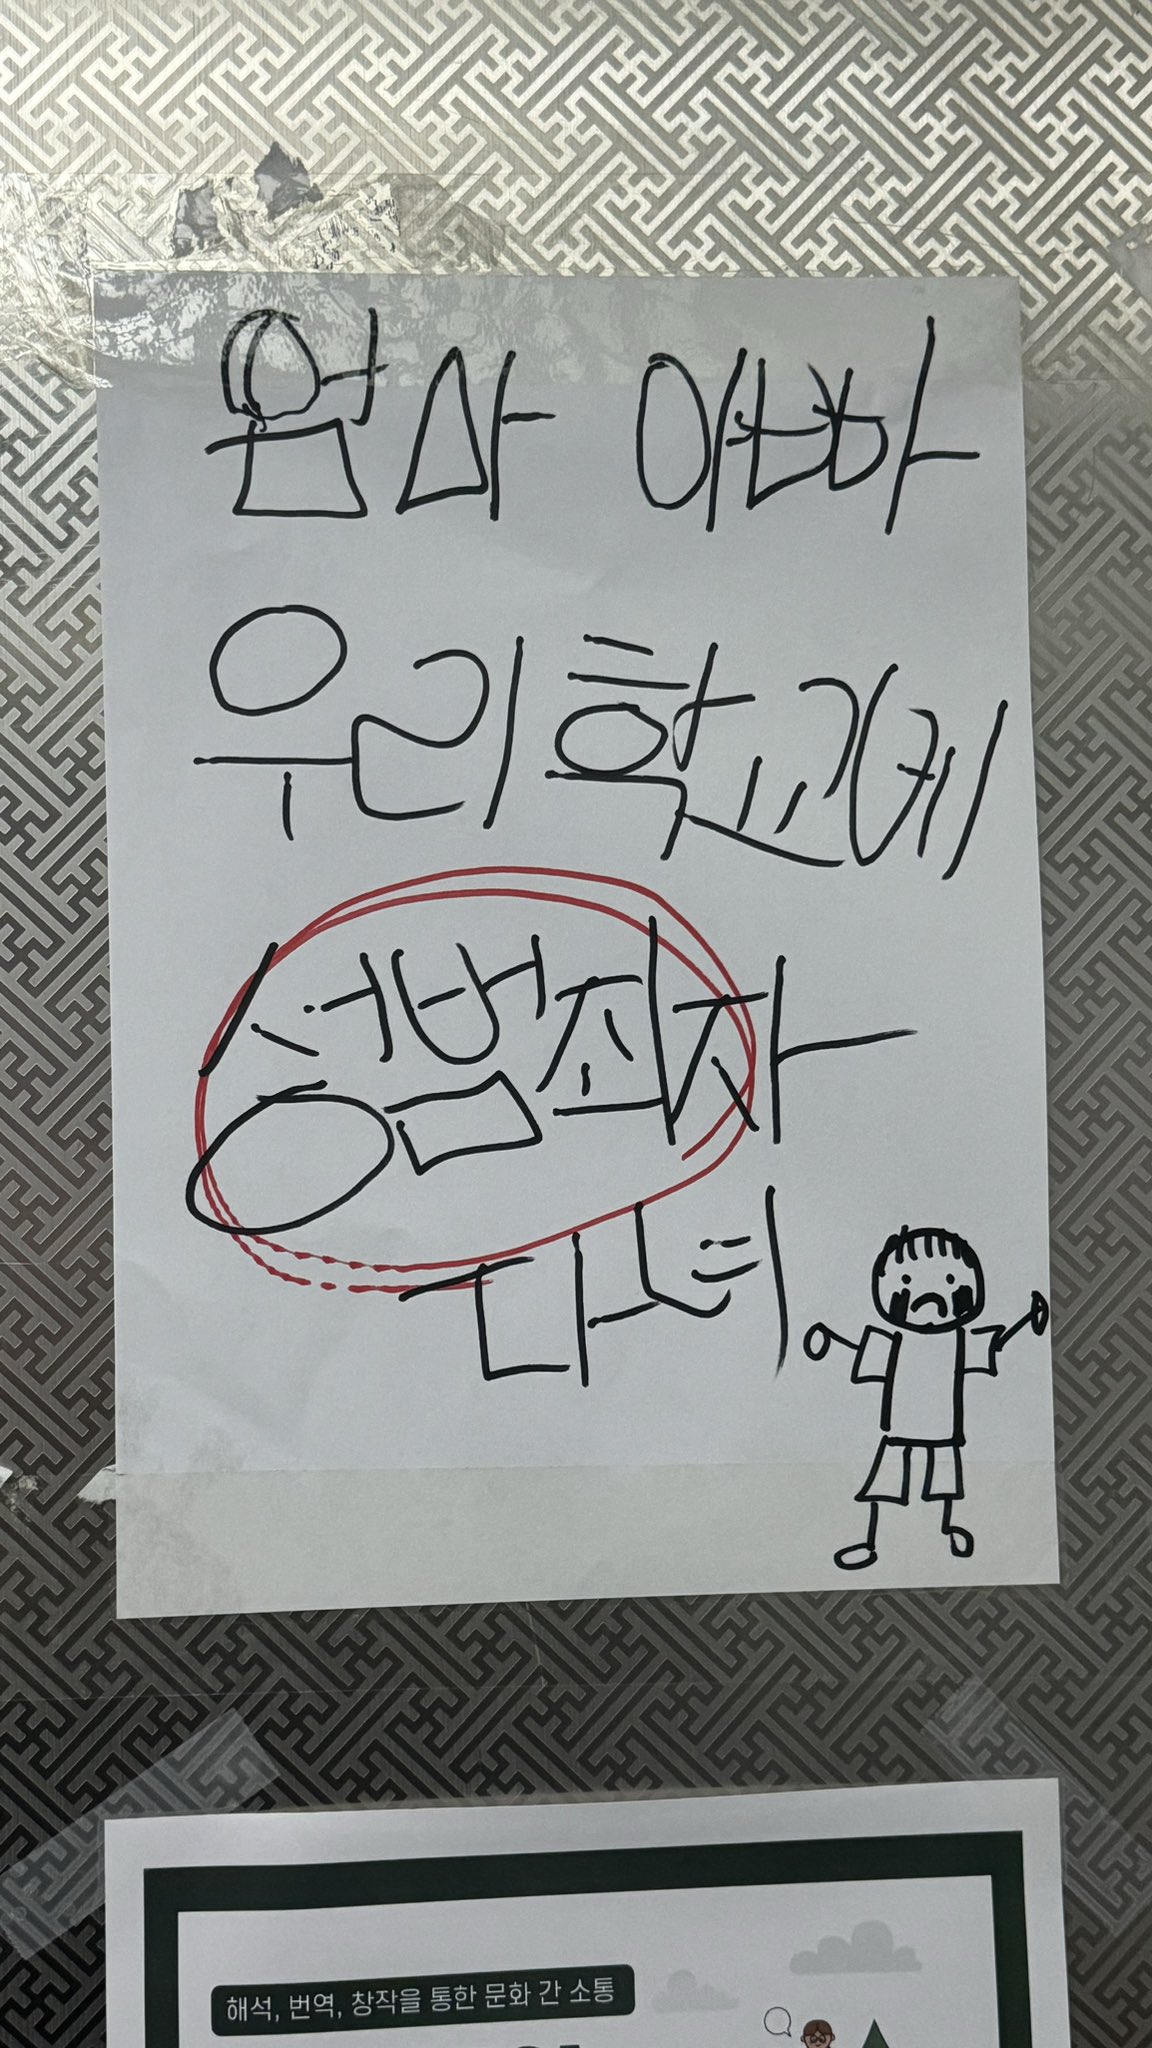 맘사 아빠
우리 학교에
성범죄자
다녀
해석, 번역, 창작을 통한 문화 간 소통